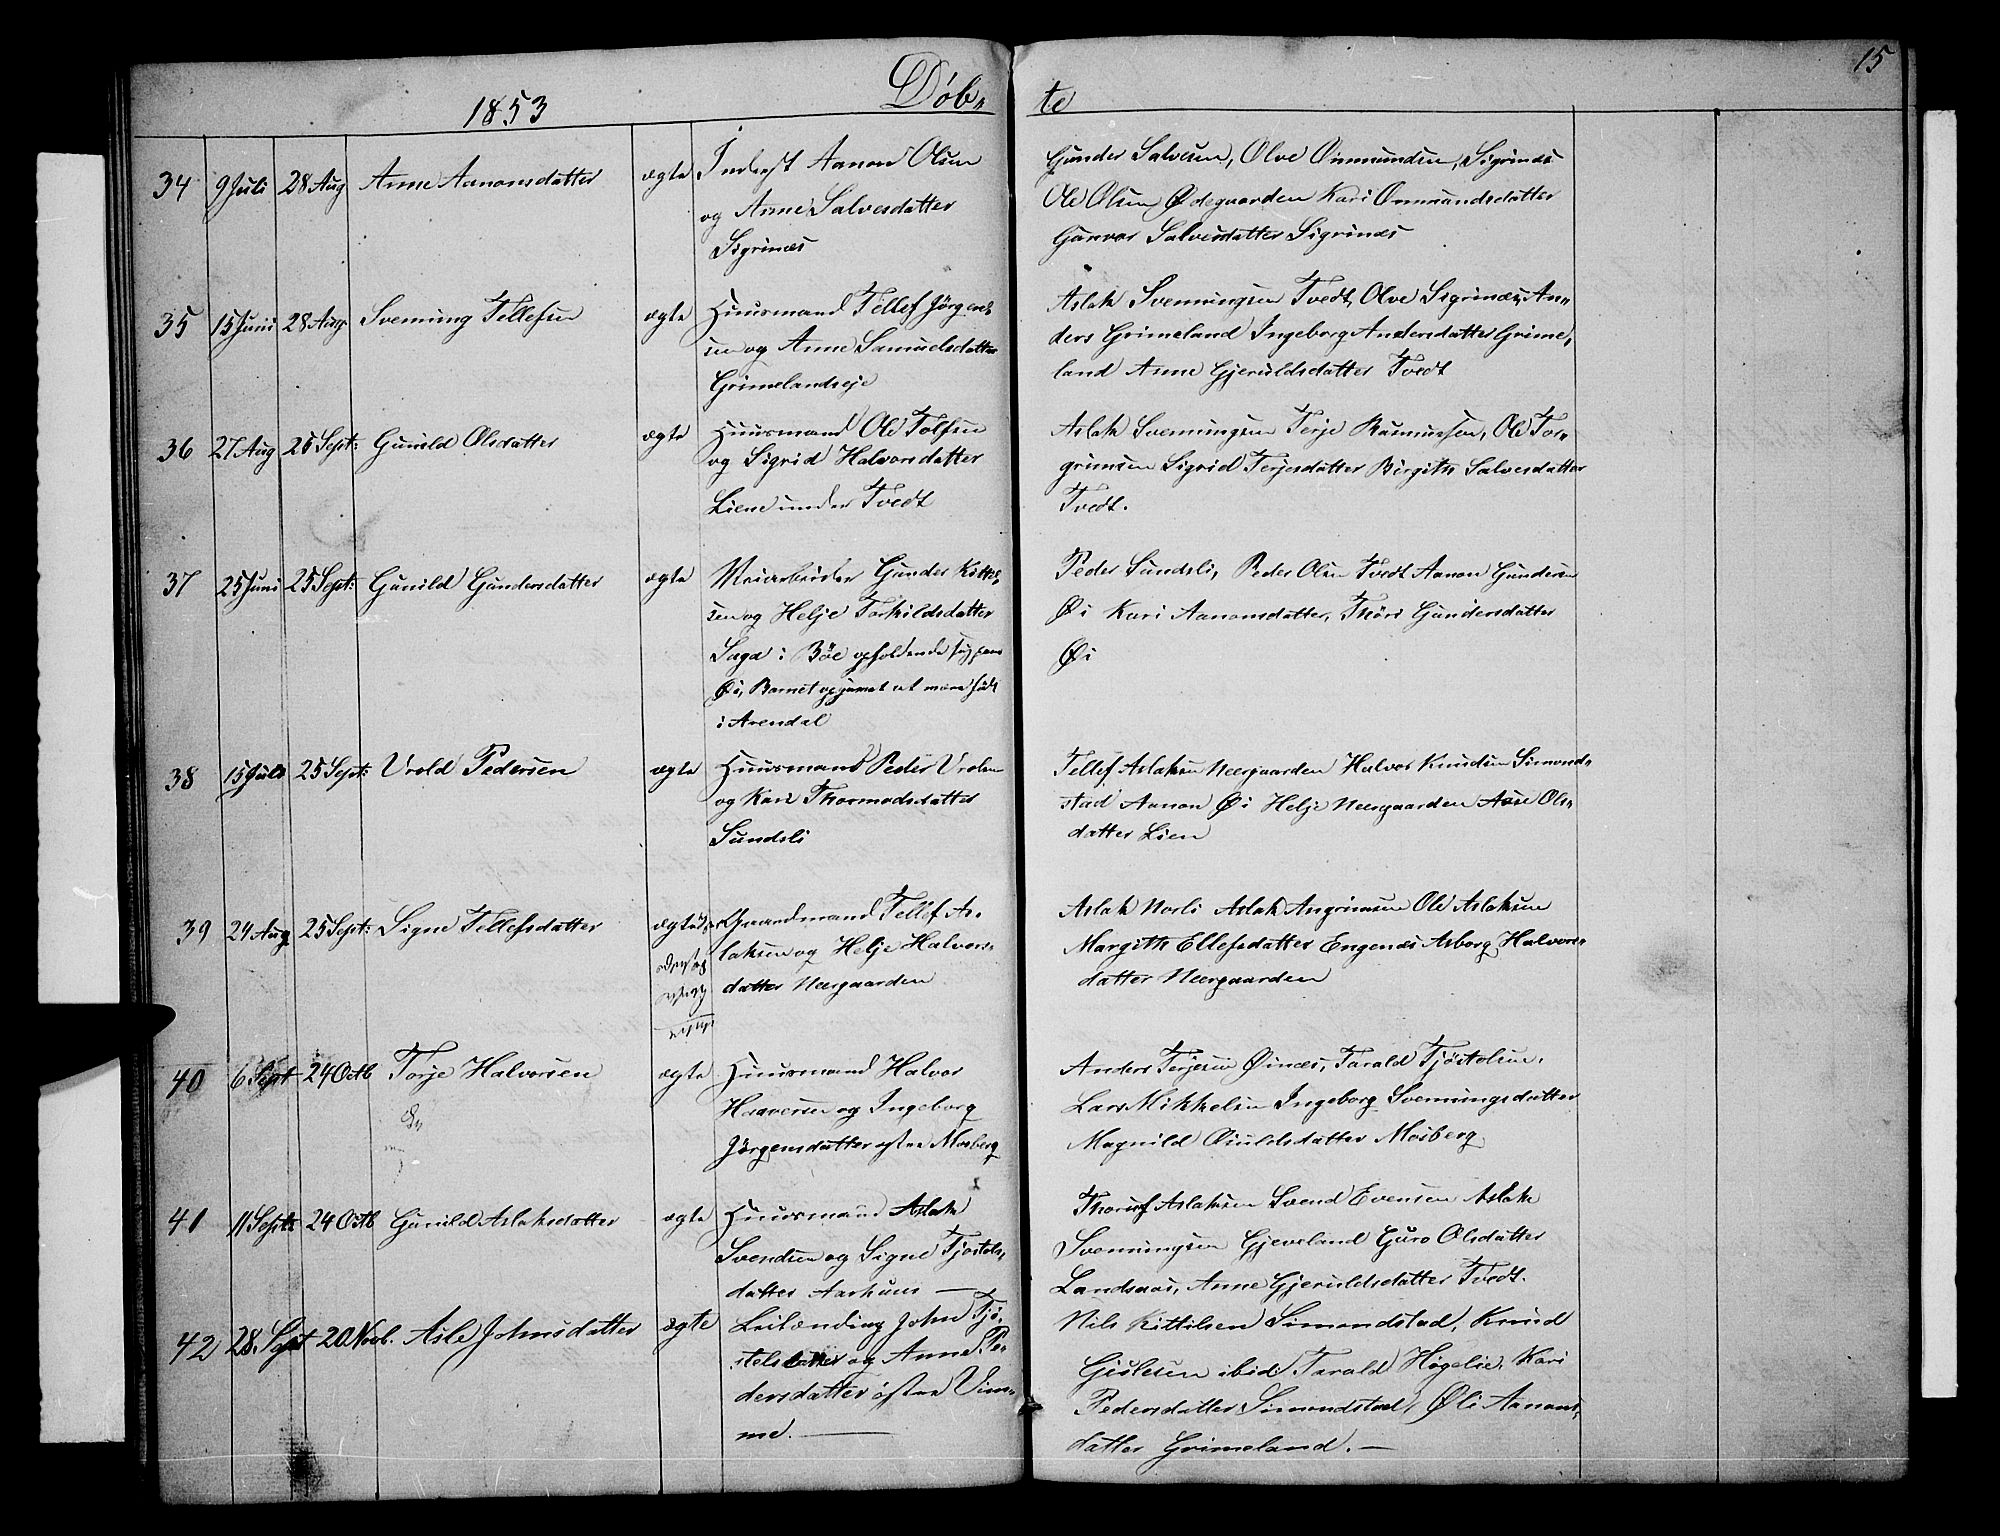 15
1853 Døb- te
34 9 Juli 28 Aug Anne Aanonsdatter ægte Inderst Aanon Olsen
og Anne Salvesdatter
Sigrinæs
Gunder Salvesen, Olve Onmundsen, Sigrinæs
Ole Olsen Ødegaarden Kari Onmundsdatter
Gunvor Salvesdatter Sigrinæs
35 15 Juni 28 Aug. Svenung Tellefsen ægte Huusmand Tellef Jørgen-
sen og Anne Samuelsdatter
Grimelandseje
Aslak Svenningsen Tvedt, Olve Sigrinæs, An-
ders Grimeland Ingeborg Andersdatter Grime-
land Anne Gjeruldsdatter Tvedt
36 27 Aug 25 Sept: Gunild Olsdatter ægte Huusmand Ole Tolfsen
og Sigrid Halvorsdatter
Liene under Tvedt
Aslak Svenningsen Terje Rasmussen, Ole Tor-
grimsen Sigrid Terjesdatter Birgith Salvesdatter
Tvedt.
37 25 Juni 25 Sept: Gunild Gundersdatter ægte Veiarbeider Gunder Kittel-
sen og Helje Torkildsdatter
Saga i Bøe opholdende sig paa
Øi, Barnet opgivet at være født
i Arendal
Peder Sundsli, Peder Olsen Tvedt Aanon Gundersen
Øi Kari Aanonsdatter, Thöri Gundersdatter
Øi
38 15 Juli 25 Sept: Vrold Pedersen ægte Huusmand Peder Vrolsen
og Kari Thormodsdatter
Sundsli
Tellef Aslaksen Neergaarden Halvor Knudsen Simond-
stad Aanon Øi Helje Neergaarden Asse Ols-
datter Lien
39 24 Aug 25 Sept: Signe Tellefsdatter ægte Gaardmand Tellef As-
laksen og Helje Halvors-
datter Neergaarden
Aslak Norli Aslak Angrimsen Ole Aslaksen
Margith Ellefsdatter Engenes Asborg Halvors-
datter Neergaarden
40 6 Sept 24 Octb Torje Halvorsen ægte Huusmand Halvor
Haaversen og Ingeborg
Jørgensdatter østre Mosberg
Anders Terjesen Øinæs, Tarald Tjöstolsen,
Lars Mikkelsen Ingeborg Svenningsdatter
Magnild Oiuldsdatter Mosberg
41 11 Septb 24 Octb Gunild Aslaksdatter ægte Huusmand Aslak
Svendsen og Signe Tjostols-
datter Aarhuus —
Thoruf Aslaksen Svend Evensen Aslak
Svenningsen Gjeveland Guro Olsdatter
Landsaas, Anne Gjeruldsdatter Tvedt.
42 28. Sept 20 Novb. Asle Johnsdatter ægte Leilænding John Tjø-
og Anne Pe-
dersdatter østre Vim-
me. —
Nils Kittilsen Simonstad, Knud
Gislesen ibid, Tarald Høgelie, Kari
Pedersdatter Simondstad, Øli Aanons-
datter Grimeland. —